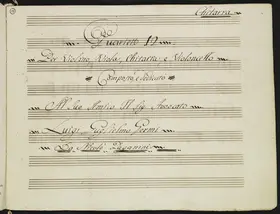 Chitarra
Quartetto 12
Per Violino, Viola, Chitarra, e Violoncello
Composto e Dedicato
Al Suo Amico, Il Sig. Avvocato
Luigi Guglielmo Germi
Da Nicolò Paganini